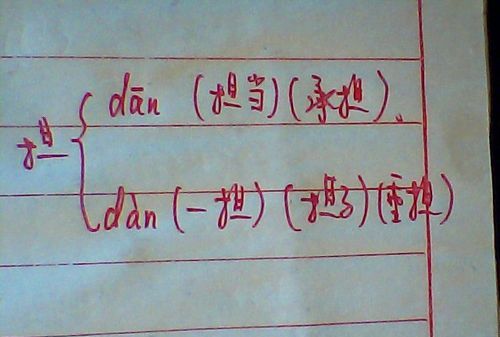 dān (担当) (承担)、
担
dàn (一担) (担子) (重担)